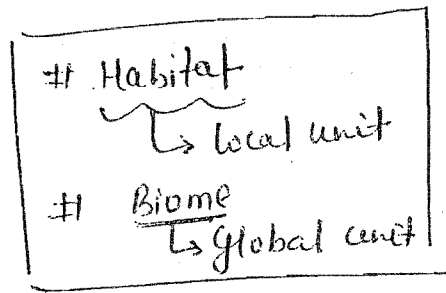 # Habitat
↳ local unit
# Biome
↳ Global unit